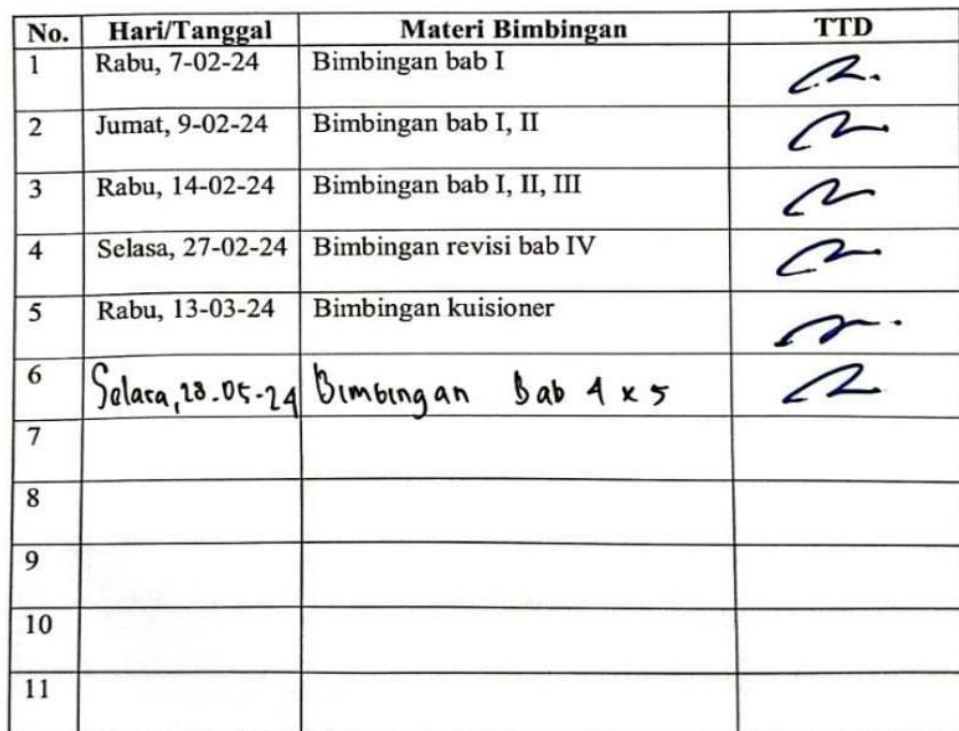 No. Hari/Tanggal Materi Bimbingan TTD
1 Rabu, 7-02-24 Bimbingan bab I
2 Jumat, 9-02-24 Bimbingan bab I, II
3 Rabu, 14-02-24 Bimbingan bab I, II, III
4 Selasa, 27-02-24 Bimbingan revisi bab IV
5 Rabu, 13-03-24 Bimbingan kuisioner
6 Selasa, 28-05-24 Bimbingan Bab 4 x 5
7
8
9
10
11